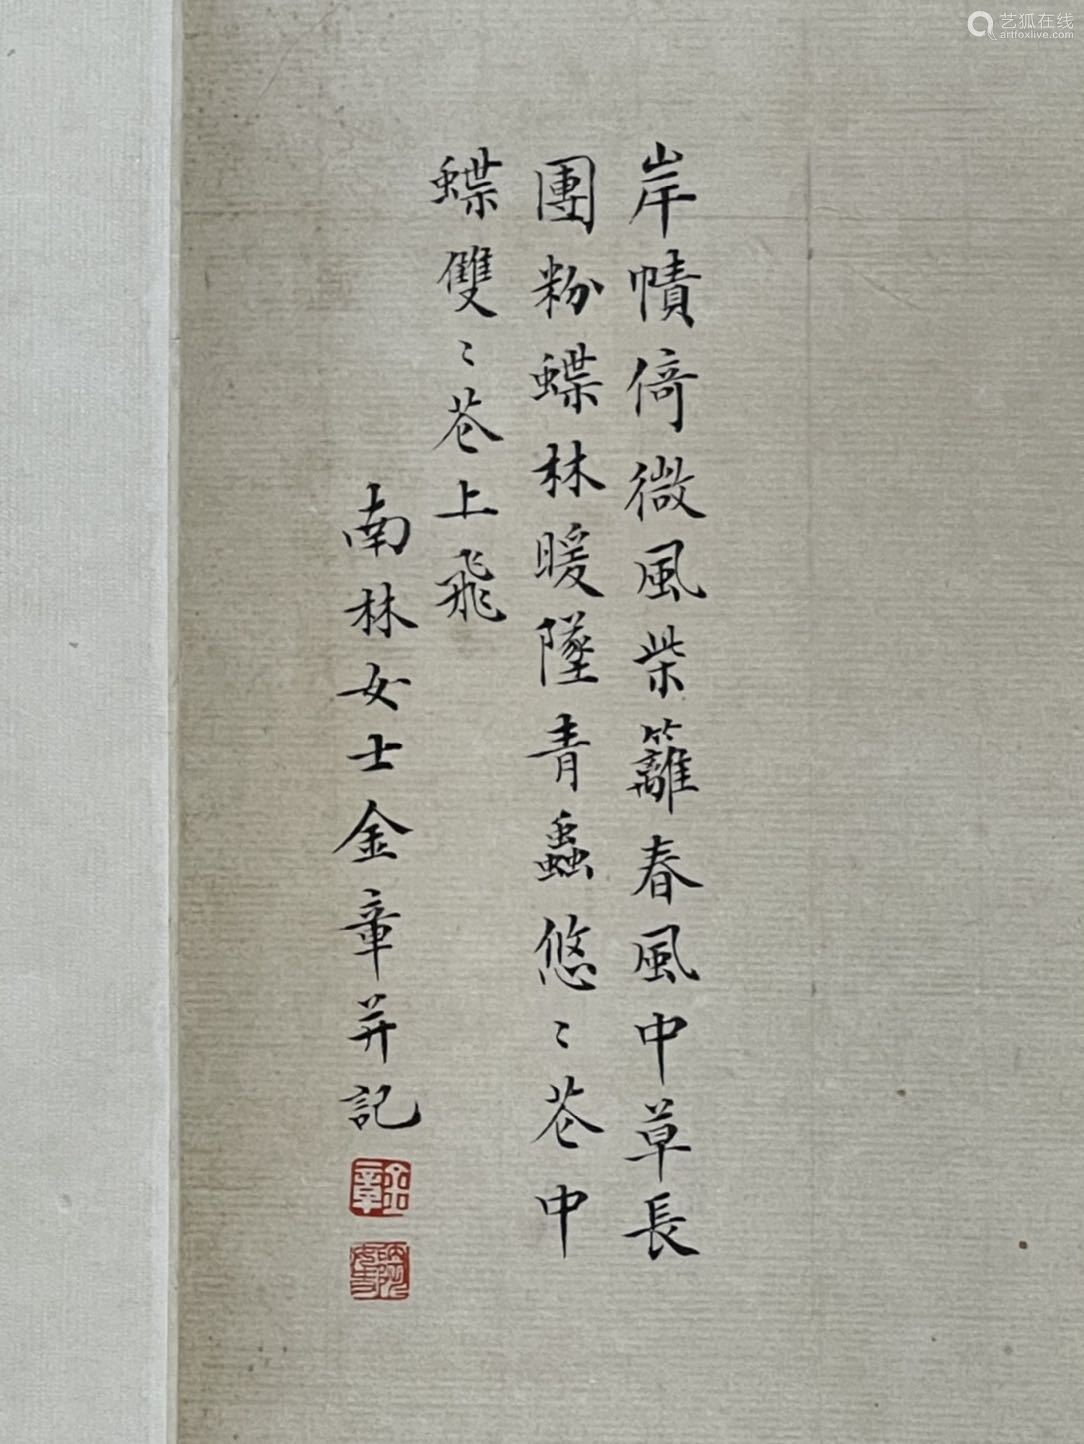 艺狐在线
artfoxlive.com
岸幘倚微風柴籬春風中草長
團粉蝶林暖墜青蟲悠〻花中
蝶雙〻花上飛
南林女士金章并記
金章